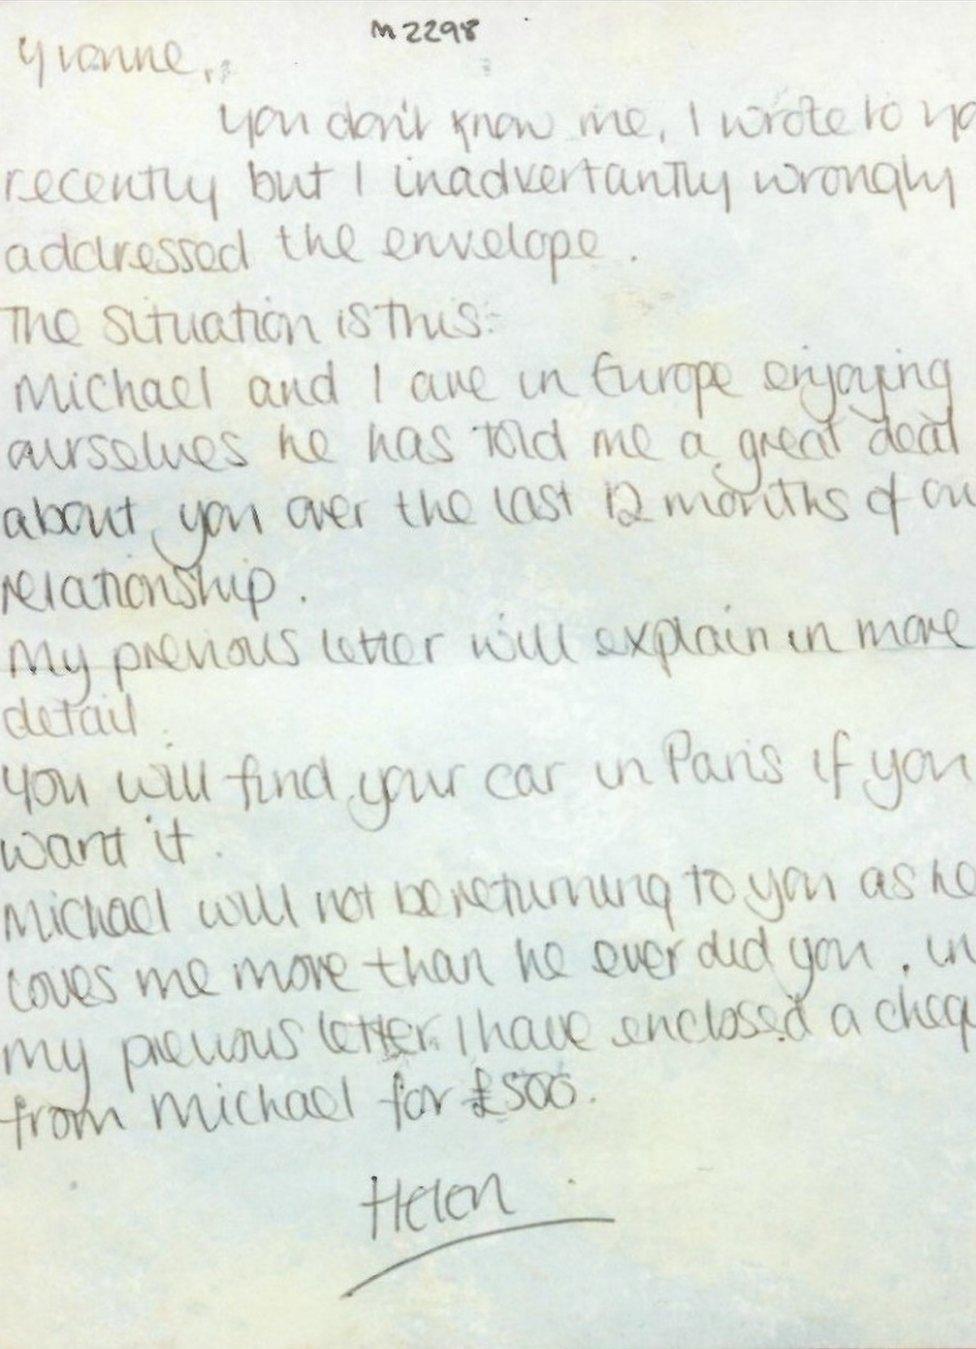 M2298
Yvonne,
you don't know me, I wrote to yo
recently but I inadvertantly wrongly
addressed the envelope.
The situation is this:-
Michael and I are in Europe enjoying
ourselves he has told me a great deal
about you over the last 12 months of ou
relationship.
My previous letter will explain in more
detail.
You will find your car in Paris if you
want it.
Michael will not be returning to you as he
loves me more than he ever did you. in
my previous letter I have enclosed a cheq
from Michael for £500.
Helen